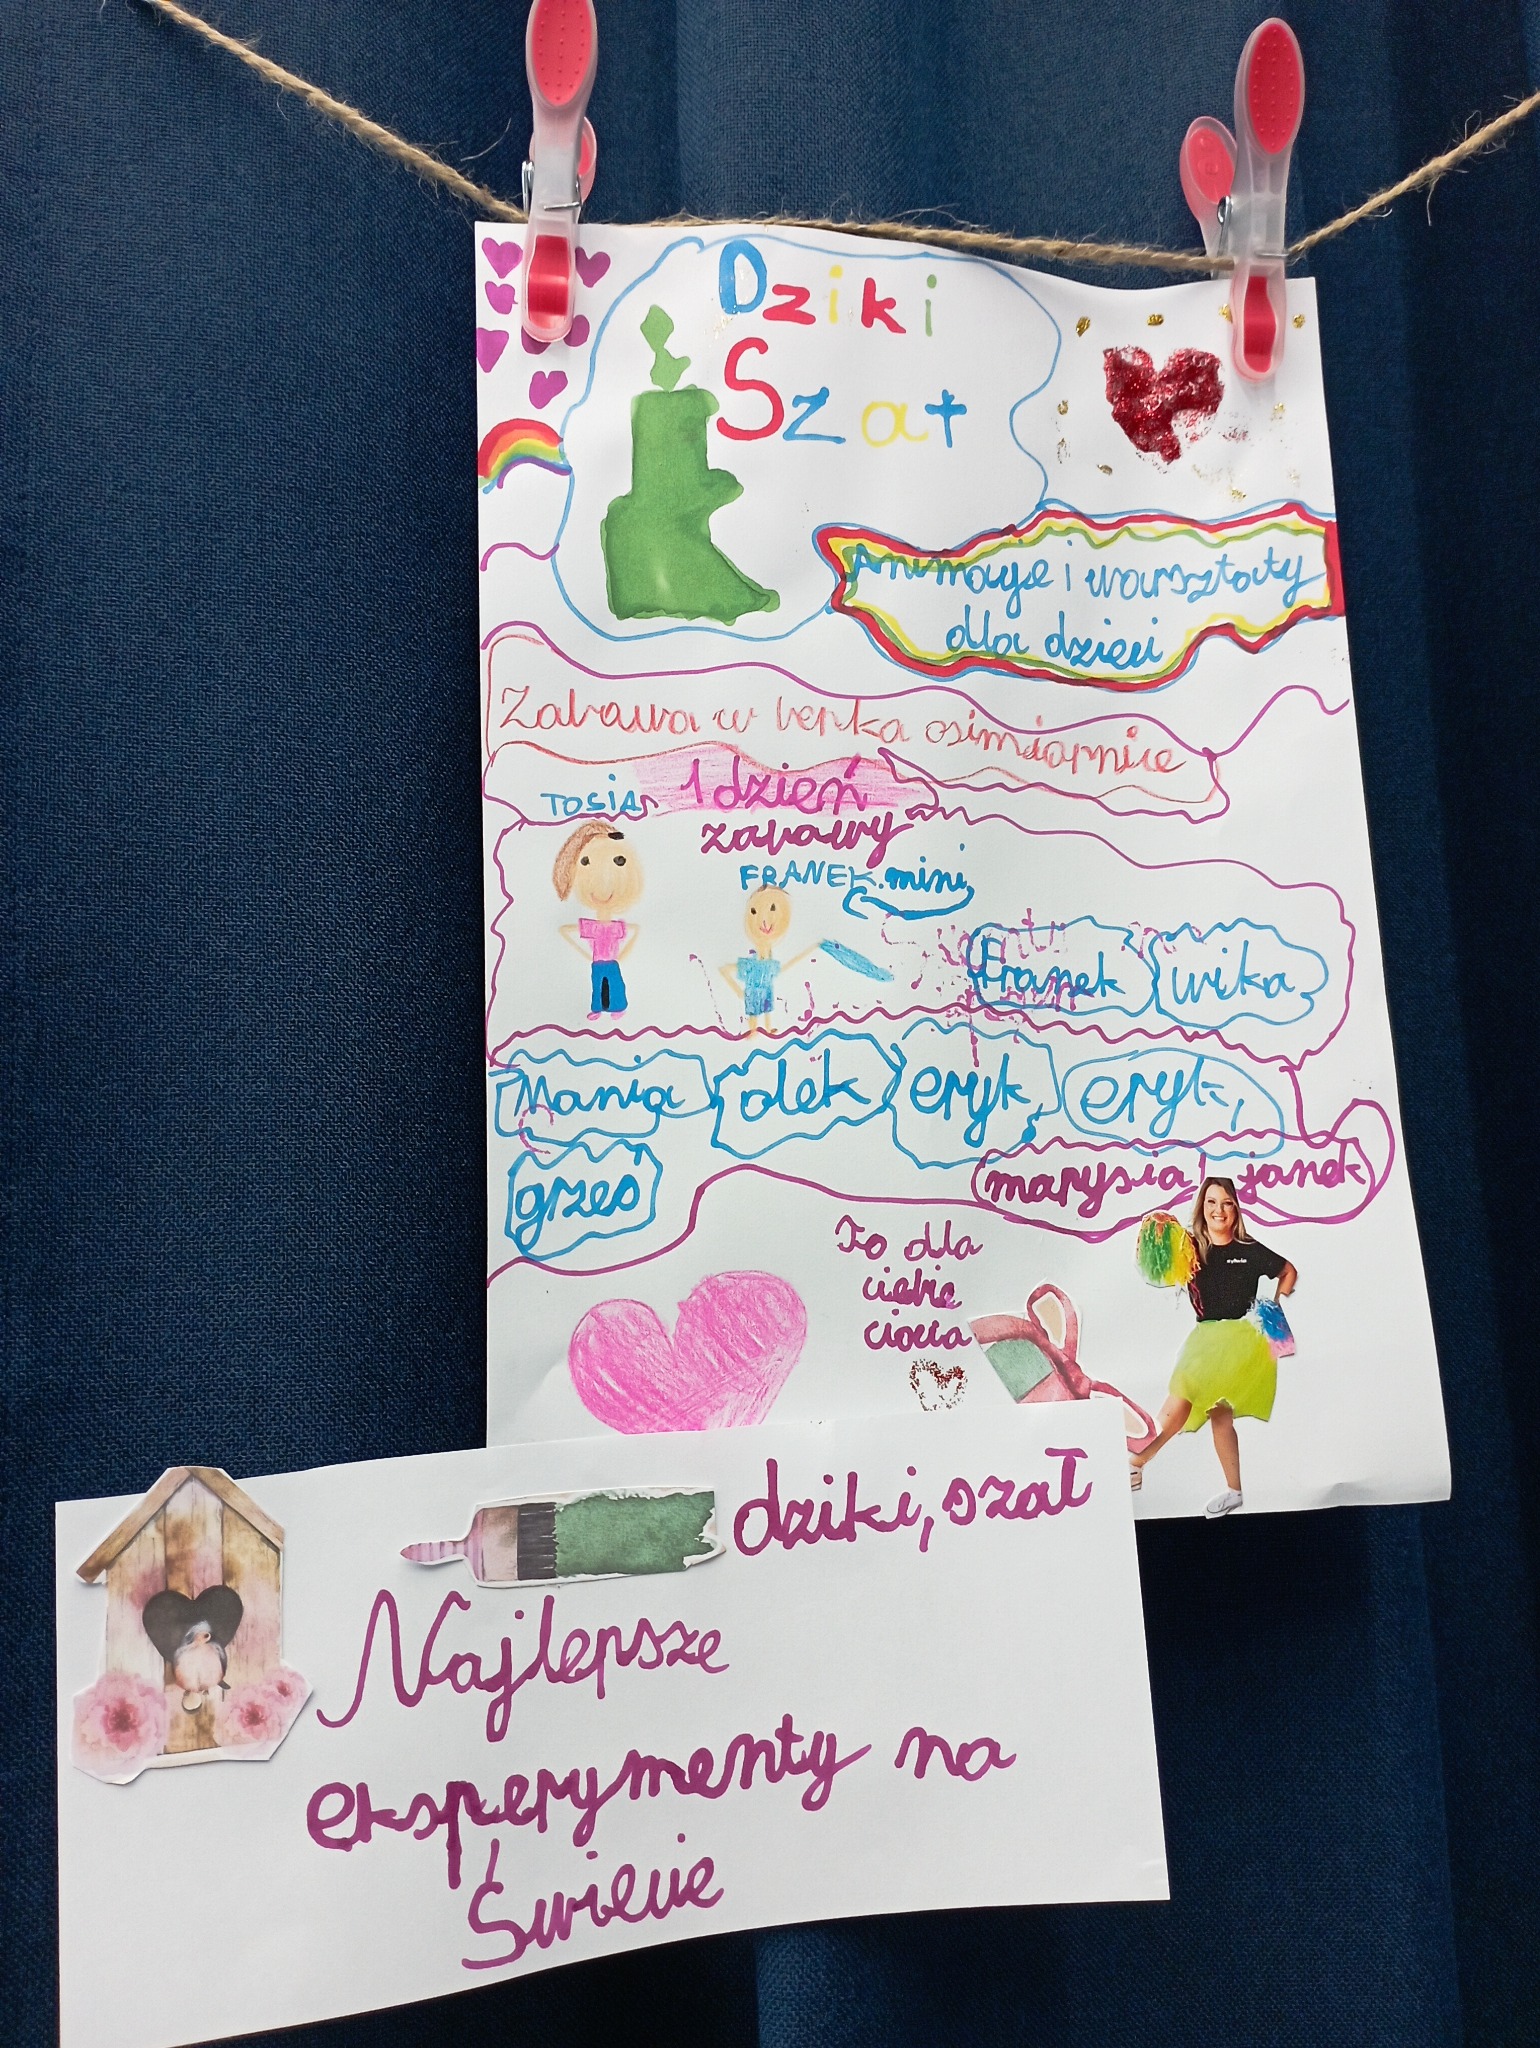 Dziki
Szat
Animacje i warsztaty
dla dzieci
Zabawa w berka osimiornice
TOSIA
1 dzień
zabawy
FRANEK.mini
Franek wika
Mania olek eryk eryk
grzes
marysia janek
To dla
ciebie
ciocia
dziki, szał
Najlepsze
eksperymenty na
Świecie